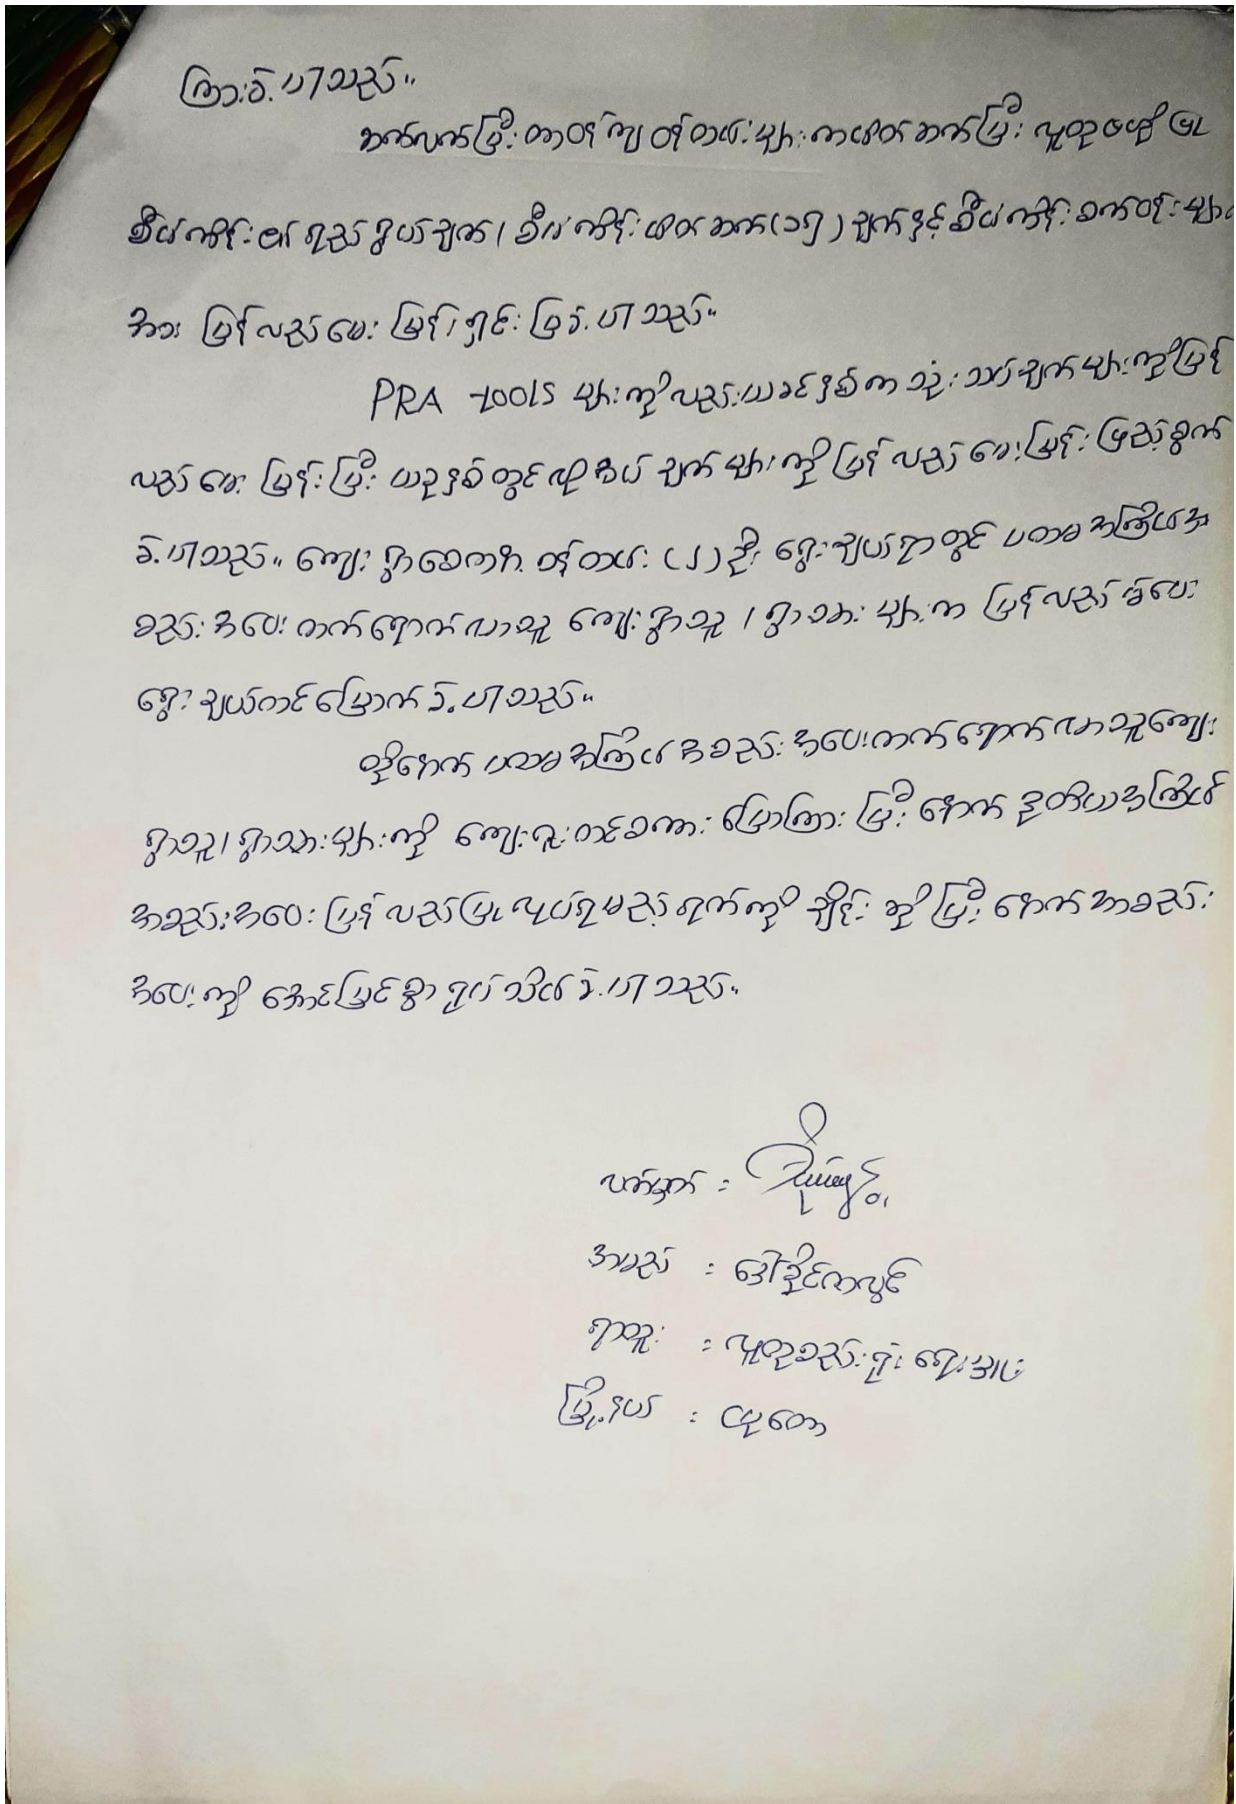 ကြားခဲ့ပါသည်။
ဆက်လက်ပြီး တာဝန်ကျ ဝန်ထမ်းများကထိတ်ဆက်ပြီး လူထုဗဟိုပြု
စီမံကိန်း၏ ရည်ရွယ်ချက်၊ စီမံကိန်းထိတ်ဆက်(၁၅)ချက်နှင့် စီမံကိန်းစက်ဝန်းများ
အား ပြန်လည်မေးမြန်း၊ ရှင်းပြခဲ့ပါသည်။
PRA tools များကိုလည်းယခင်နှစ်က သုံးသပ်ချက်များကိုပြန်
လည်မေးမြန်းပြီး ယခုနှစ်တွင် လိုအပ်ချက်များကို ပြန်လည်မေးမြန်းဖြည့်စွက်
ခဲ့ပါသည်။ ကျေးရွာစေတနာ့ဝန်ထမ်း (၂)ဦး ရွေးချယ်ရာတွင် ပထမအကြိမ်အ
စည်းအဝေးတက်ရောက်လာသူ ကျေးရွာသူ၊ ရွာသားများက ပြန်လည်မဲပေး
ရွေးချယ်တင်မြှောက်ခဲ့ပါသည်။
ထို့နောက် ပထမအကြိမ်အစည်းအဝေးတက်ရောက်လာသူကျေး
ရွာသူ၊ ရွာသားများကို ကျေးဇူးတင်စကားပြောကြားပြီးနောက် ဒုတိယအကြိမ်
အစည်းအဝေး ပြန်လည်ပြုလုပ်ရမည့်ရက်ကို ချိန်းဆိုပြီးနောက်အစည်း
အဝေးကို အောင်မြင်စွာ ရုပ်သိမ်းခဲ့ပါသည်။
လက်မှတ် :
အမည် : ဒေါ်ခိုင်ကလွင်
ရာထူး : လူထုစည်းရုံးရေးမှူး
မြို့နယ် : ငပုတော